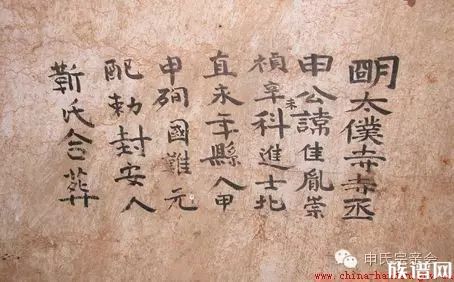 眀太僕寺寺丞
申公諱佳胤崇
禎辛未科進士北
直永年縣人甲
申殉國難元
配勅封安人
靳氏合葬
申氏宗亲会
族谱网